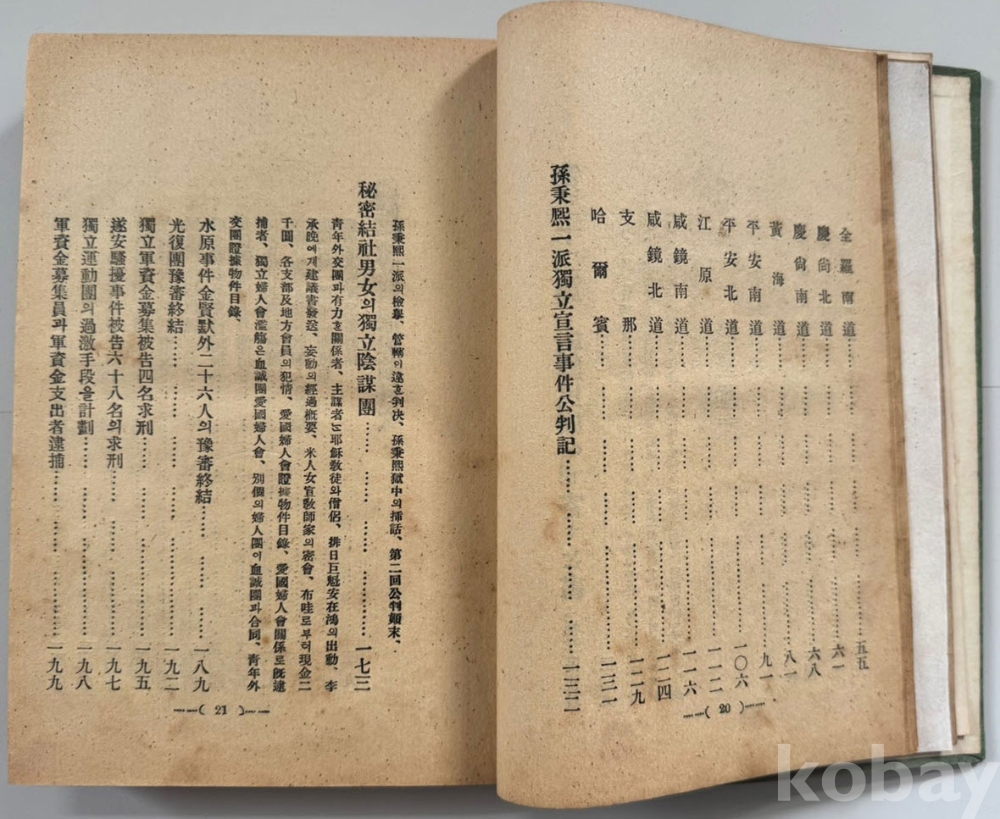 全羅南道 五五
慶尙北道 六一
慶尙南道 六八
黃海道 八一
平安南道 九一
平安北道 一〇六
江原道 一一二
咸鏡南道 一一六
咸鏡北道 一二四
支那 一二九
哈爾賓 一三一
孫秉熙一派獨立宣言事件公判記 一三二
——( 20 )——
孫秉熙一派의檢擧、管轄이違호判決、孫秉熙獄中의揷話、第二回公判顚末、
秘密結社男女의獨立陰謀團 一七三
靑年外交團과有力호關係者、主謀者는耶穌敎徒와僧侶、排日巨魁安在鴻의出動、李
承晩에게建議書發送、妄動의經過槪要、米人女宣敎師家의密會、布哇로부터現金二
千圓、各支部及地方會員의犯情、愛國婦人會證據物件目錄、愛國婦人會關係로旣逮
捕者、獨立婦人會濫觴은血誠團愛國婦人會、別個의婦人團이血誠團과合同、靑年外
交團證據物件目錄、
水原事件金賢默外二十六人의豫審終結 一八九
光復團豫審終結 一九二
獨立軍資金募集被告四名求刑 一九五
遂安騷擾事件被告六十八名의求刑 一九七
獨立運動團의過激手段을計劃 一九八
軍資金募集員과軍資金支出者逮捕 一九九
——( 21 )——
kobay